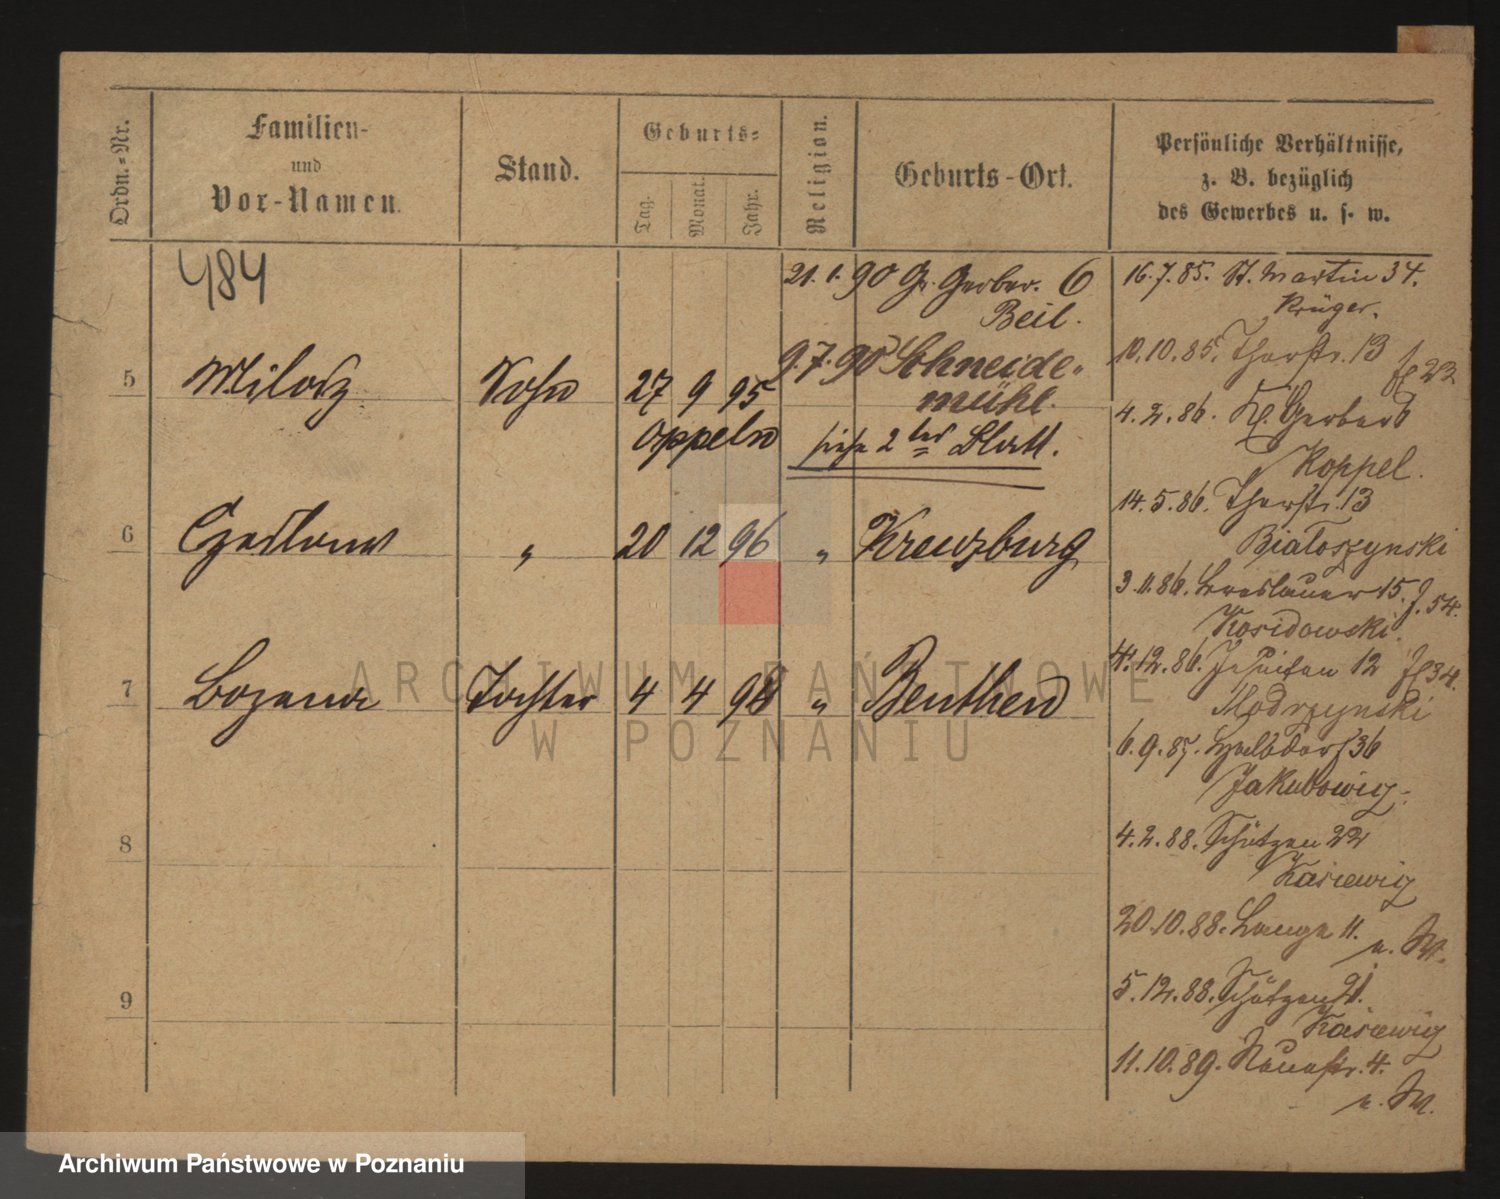 Ordn.-Nr.
Familien-
und
Vor-Namen.
Stand.
Geburts-
Tag.
Monat.
Jahr.
Religion.
Geburts-Ort.
Persönliche Verhältnisse,
z. B. bezüglich
des Gewerbes u. s. w.
484
21.1.90 Gr. Gerber. 6
Beil.
9.7.90 Schneide-
mühl.
siehe 2ter Blatt.
5 Milosz Sohn 27 9 95
Oppeln
6 Czeslaw " 20 12 96 " Kreuzburg
7 Bozena Tochter 4 4 98 " Beuthen
8
9
16.7.85. St. Martin 34.
Krüger.
10.10.85. Thorstr. 13
4.2.86. Kl. Gerber 6
Koppel.
14.5.86. Thorstr. 13
Bialoszynski
3.11.86. Breslauer 15. J. 54.
Kosidowski.
4.12.86. Jesuiten 12
Modrzynski
6.9.87. Halbdorf 36
Jakubowicz.
4.2.88. Schützen 22
Kasiewicz
20.10.88. Lange 11.
u. M.
5.12.88. Schützen 21.
Kasiewicz
11.10.89. Neuestr. 4.
u. M.
ARCHIWUM PAŃSTWOWE
W POZNANIU
Archiwum Państwowe w Poznaniu